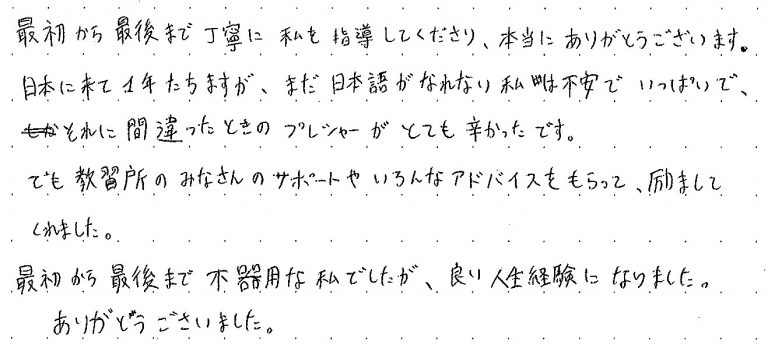 最初から最後まで丁寧に私を指導してくださり、本当にありがとうございます。
日本に来て1年たちますが、まだ日本語がなれない私は不安でいっぱいで、
それに間違ったときのプレシャーがとても辛かったです。
でも教習所のみなさんのサポートやいろんなアドバイスをもらって、励まして
くれました。
最初から最後まで不器用な私でしたが、良い人生経験になりました。
ありがとうございました。